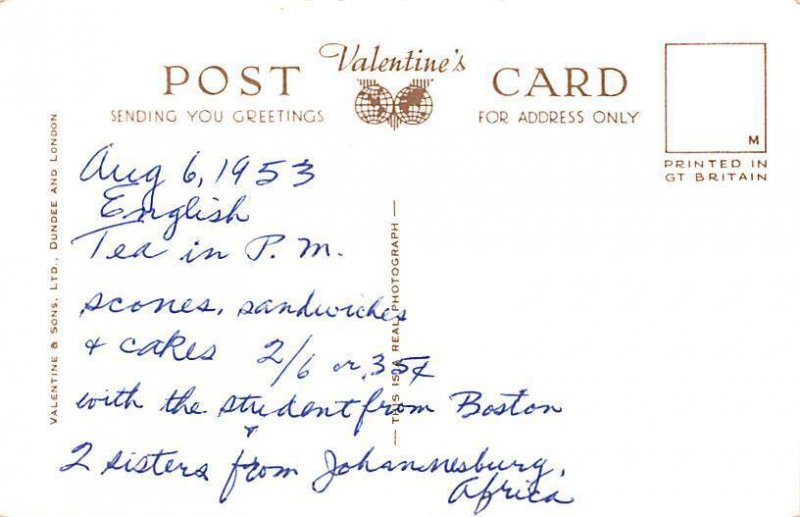 Valentine's
POST CARD
SENDING YOU GREETINGS
FOR ADDRESS ONLY
M
PRINTED IN
GT BRITAIN
VALENTINE & SONS, LTD., DUNDEE AND LONDON
THIS IS A REAL PHOTOGRAPH
Aug 6, 1953
English
Tea in P.M.
scones, sandwiches
& cakes 2/6 or .35¢
with the student from Boston
&
2 sisters from Johannesburg,
Africa